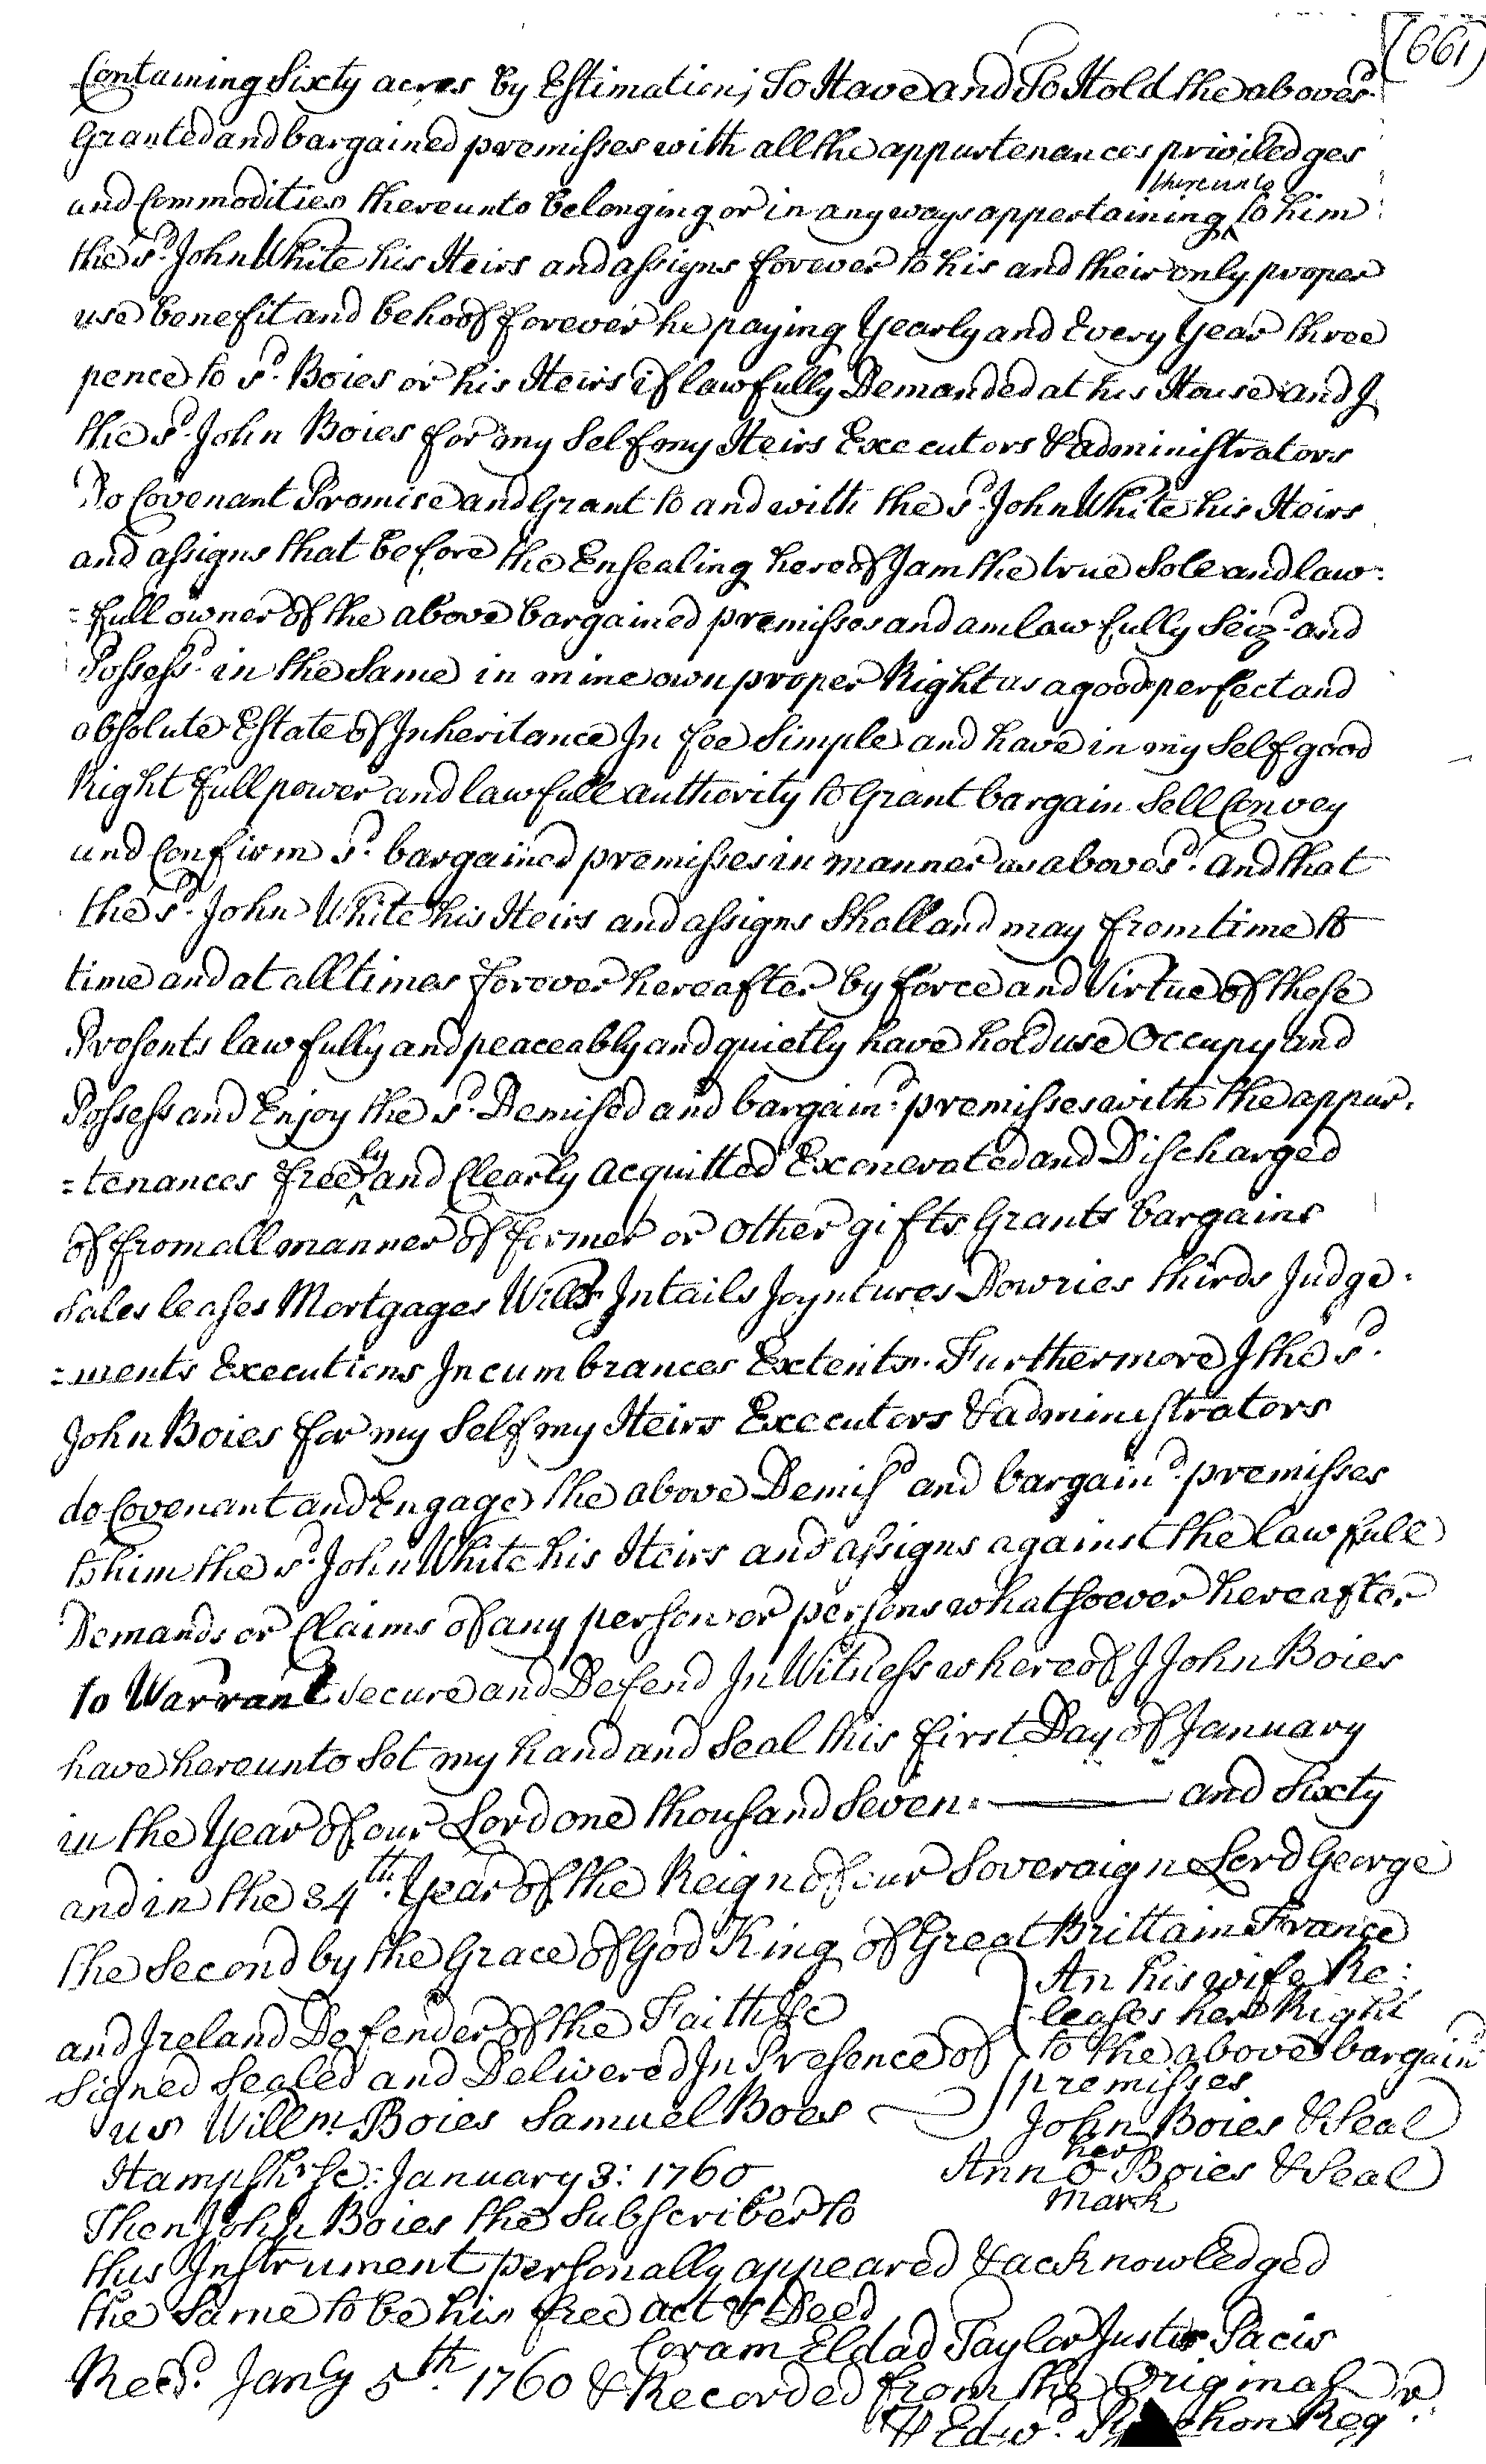 (661)
Containing Sixty acres by Estimation; To Have and To Hold the aboves.d
Granted and bargained premisses with all the appurtenances priviledges
and Commodities thereunto belonging or in any ways appertaining thereunto to him
the s.d John White his Heirs and assigns forever to his and their only proper
use benefit and behoof forever he paying Yearly and Every Year three
pence to s.d Boies or his Heirs if lawfully Demanded at his House and I
the s.d John Boies for my Self my Heirs Executors & administrators
Do Covenant Promise and Grant to and with the s.d John White his Heirs
and assigns that before the Ensealing hereof I am the true Sole and law-
=full owner of the above bargained premisses and am lawfully Seiz.d and
Possess.d in the Same in mine own proper Right as a good perfect and
absolute Estate of Inheritance In fee Simple and have in my Self good
Right full power and lawfull authority to Grant bargain Sell Convey
and Confirm s.d bargained premisses in manner as aboves.d and that
the s.d John White his Heirs and assigns Shall and may from time to
time and at all times forever hereafter by force and Virtue of these
Presents lawfully and peaceably and quietly have hold use Occupy and
Possess and Enjoy the s.d Demised and bargain.d premisses with the appur-
=tenances freely and Clearly acquitted Exonerated and Discharged
of from all manner of former or other gifts Grants bargains
Sales leases Mortgages Wills Intails Joyntures Dowries thirds Judge-
=ments Executions Incumbrances Extents. Furthermore I the s.d
John Boies for my Self my Heirs Executors & administrators
do Covenant and Engage the above Demis.d and bargain.d premisses
to him the s.d John White his Heirs and assigns against the lawfull
Demands or Claims of any person or persons whatsoever hereafter
to Warrant Secure and Defend In Witness whereof I John Boies
have hereunto Set my hand and Seal this first Day of January
in the Year of our Lord one thousand Seven= —— and Sixty
and in the 34th. Year of the Reign of our Soveraign Lord George
the Second by the Grace of God King of Great Brittain France
and Ireland Defender of the Faith &c
Signed Sealed and Delivered In Presence of
us Willm. Boies Samuel Boies
An his wife Re:
leases her Right
to the above bargain.d
premisses
John Boies & Seal
her
Ann O Boies & Seal
mark
Hampshr. Sc: January 3: 1760
Then John Boies the Subscriber to
this Instrument personally appeared & acknowledged
the Same to be his free act & Deed
Coram Eldad Taylor Justis Pacis
Rec.d Janry 5th. 1760 & Recorded from the Original
Edw.d Reg.r